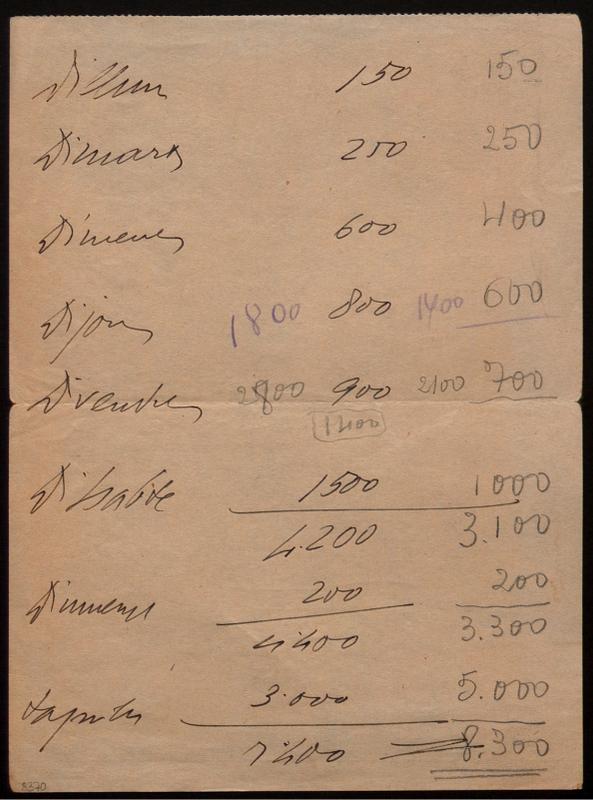 Dilluns 150 150
Dimars 250 250
Dimecres 600 400
Dijous 1800 800 1400 600
Divendres 2800 900 2100 700
1400
Dissabte 1500 1000
4.200 3.100
Diumenge 200 200
4400 3.300
3.000 5.000
7400 8.300
8370